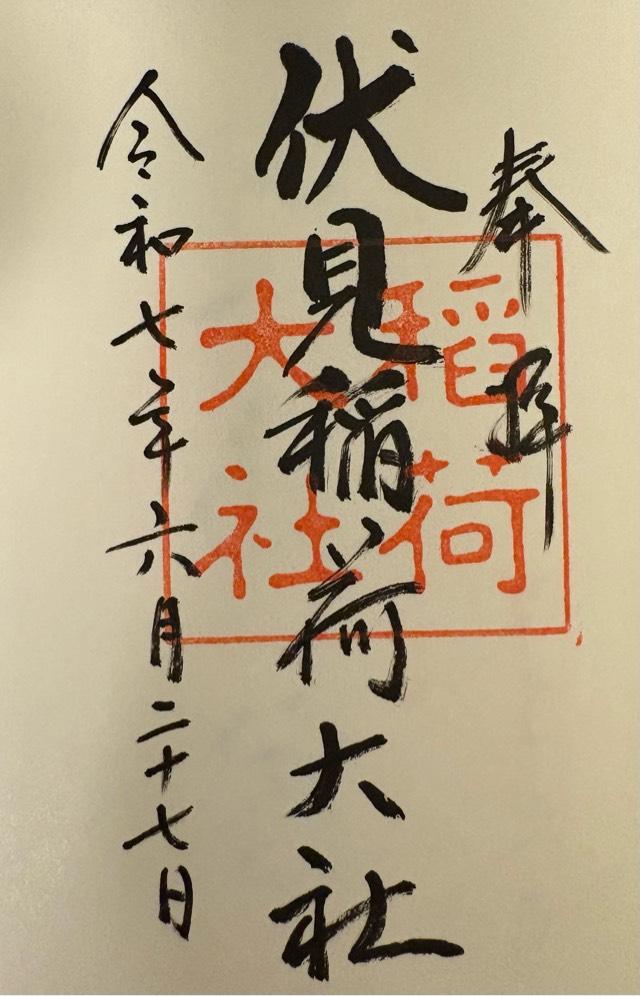 奉拝
伏見稲荷大社
令和七年六月二十七日
稲荷
大社